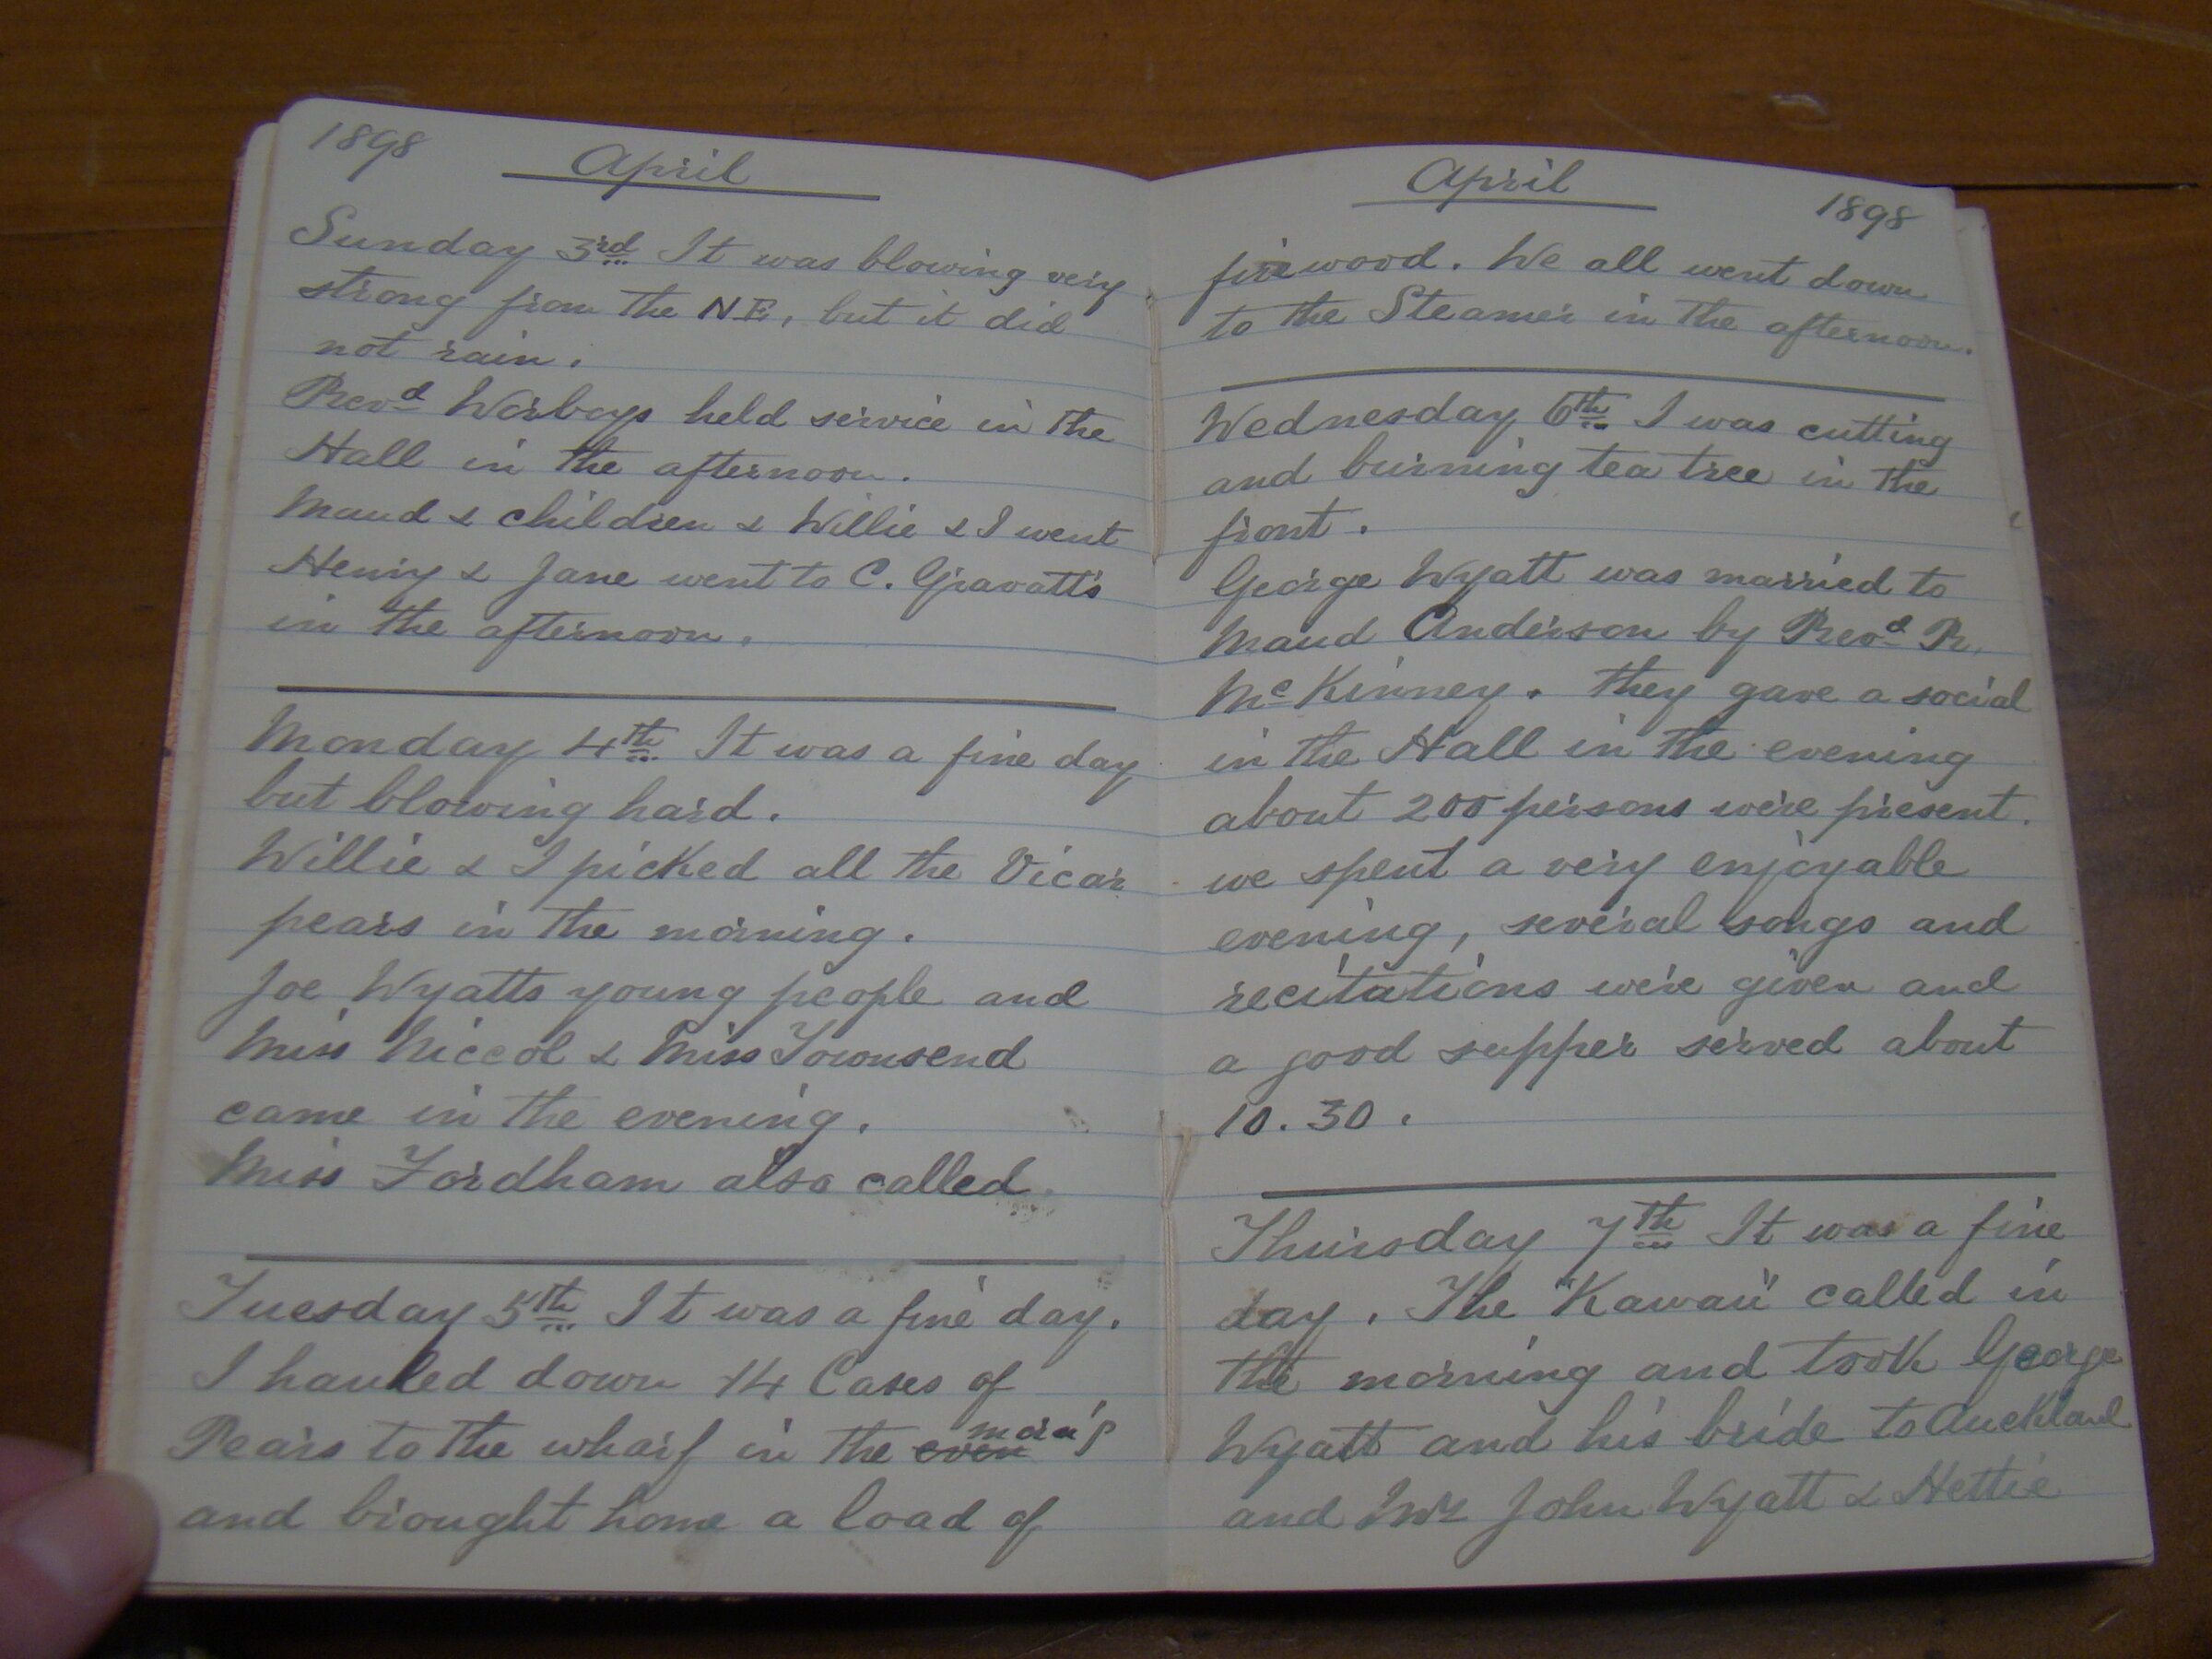 1898
April
Sunday 3rd It was blowing very
strong from the NE, but it did
not rain.
Revd Worboys held service in the
Hall in the afternoon.
Maud & children & Willie & I went
Henry & Jane went to C. Gravatt's
in the afternoon.
Monday 4th It was a fine day
but blowing hard.
Willie & I picked all the Vicar
pears in the morning.
Joe Wyatts young people and
Miss Niccol & Miss Townsend
came in the evening.
Miss Fordham also called.
Tuesday 5th It was a fine day.
I hauled down 14 Cases of
Pears to the wharf in the even morn'g
and brought home a load of
April
1898
firewood. We all went down
to the Steamer in the afternoon.
Wednesday 6th I was cutting
and burning tea tree in the
front.
George Wyatt was married to
Maud Anderson by Revd R.
McKinney. They gave a social
in the Hall in the evening
about 200 persons were present.
we spent a very enjoyable
evening, several songs and
recitations were given and
a good supper served about
10.30.
Thursday 7th It was a fine
day. The "Kawau" called in
the morning and took George
Wyatt and his bride to Auckland
and Mr John Wyatt & Hettie